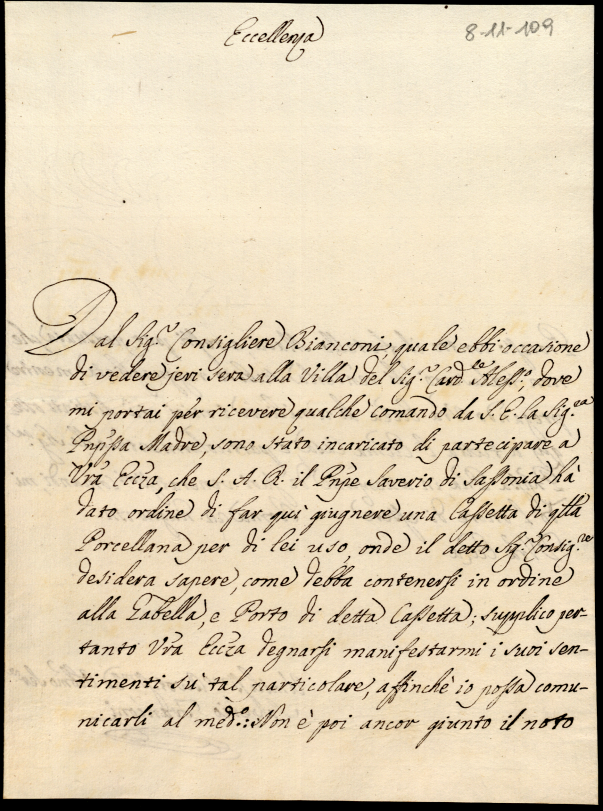 8-11-109
Eccellenza
Dal Sig.r Consigliere Bianconi, quale ebbi occasione
di vedere jeri sera alla Villa del Sig.r Card.le Aless.o, dove
mi portai per ricevere qualche comando da S. E. la Sig.ra
Pnpssa Madre, sono stato incaricato di partecipare a
Vra Eccza, che S. A. R. il Pnpe Saverio di Sassonia hà
dato ordine di far quì giugnere una Cassetta di qlla
Porcellana per di lei uso, onde il detto Sig.r Consig.re
desidera sapere, come debba contenersi in ordine
alla Gabella, e Porto di detta Cassetta; supplico per-
tanto Vra Eccza degnarsi manifestarmi i suoi sen-
timenti sù tal particolare, affinchè io possa comu-
nicarli al med.o: Non è poi ancor giunto il noto